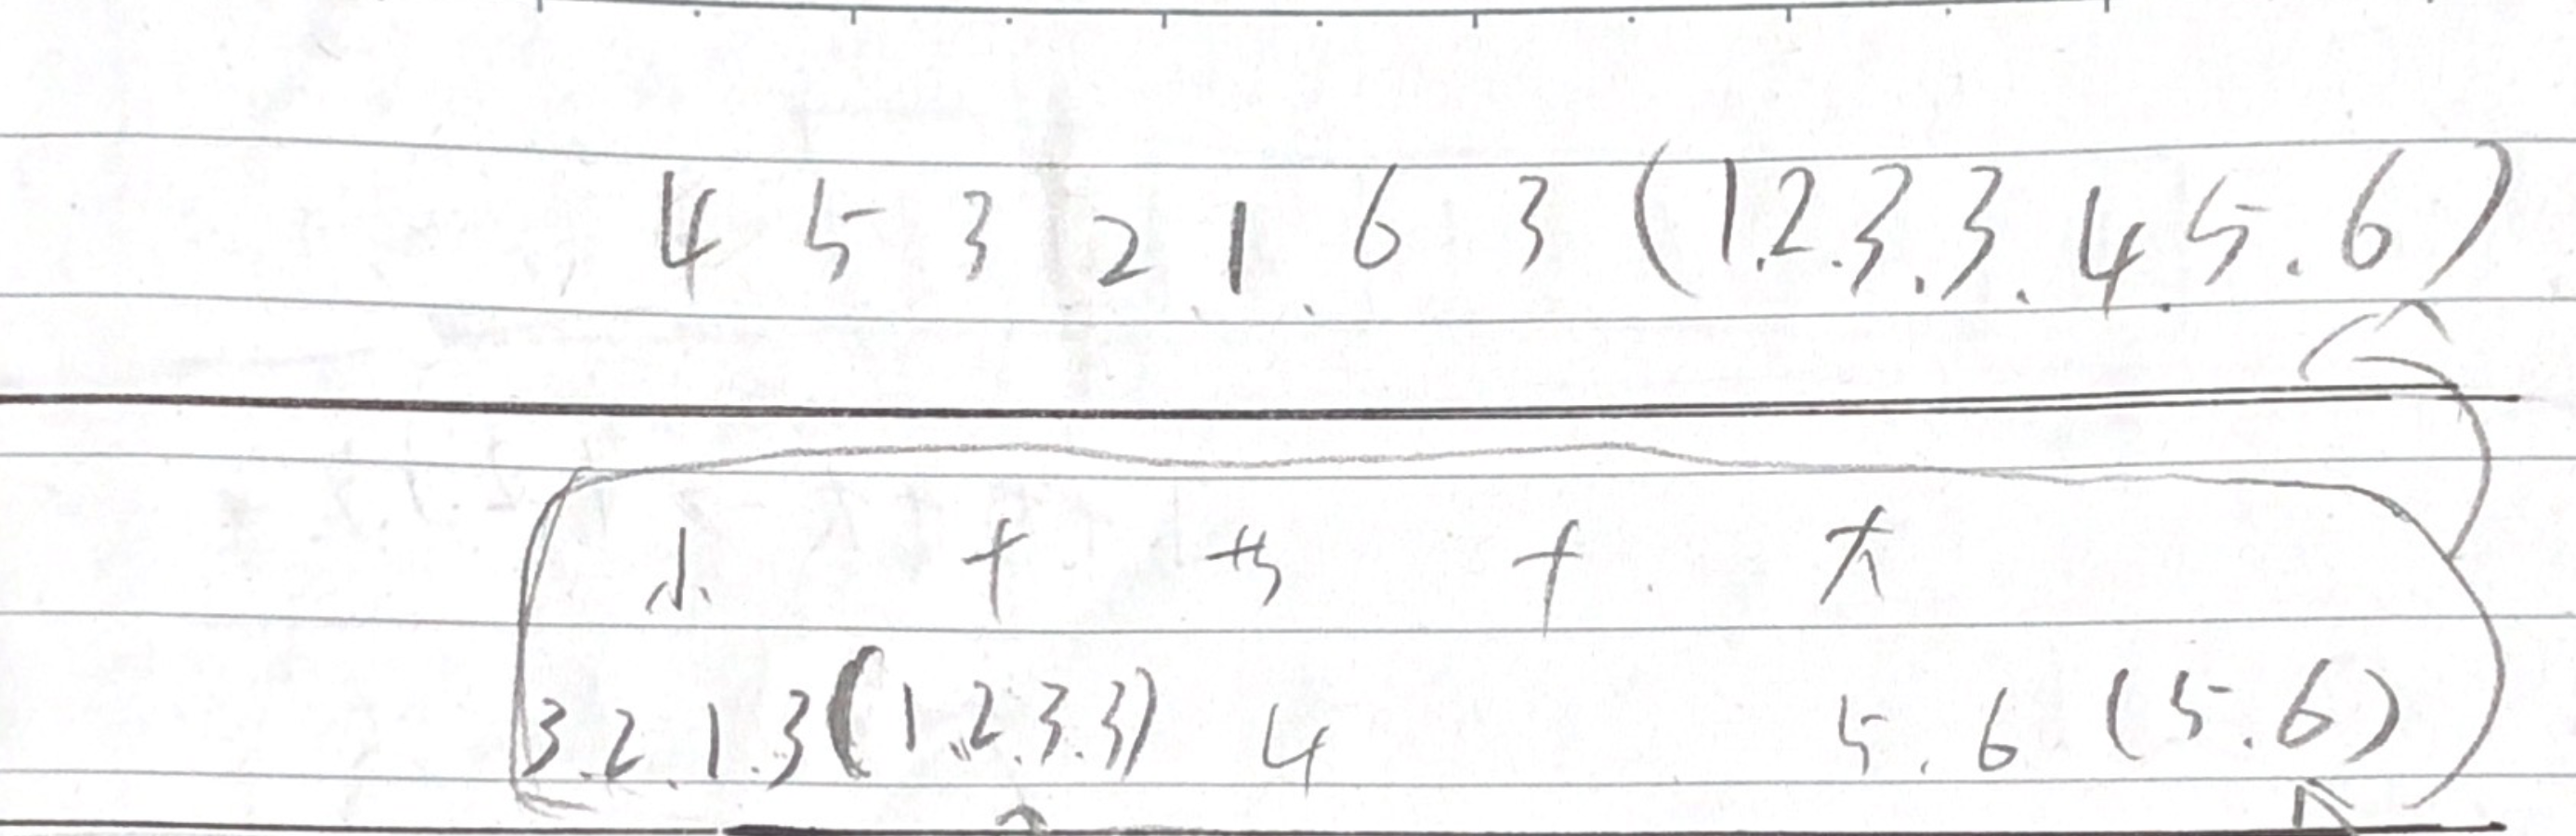 4 5 3 2.1.6 3 (1.2.3.3.4.5.6)
小 + + 大
3.2.1.3(1.2.3.3) 4 5.6 (5.6)